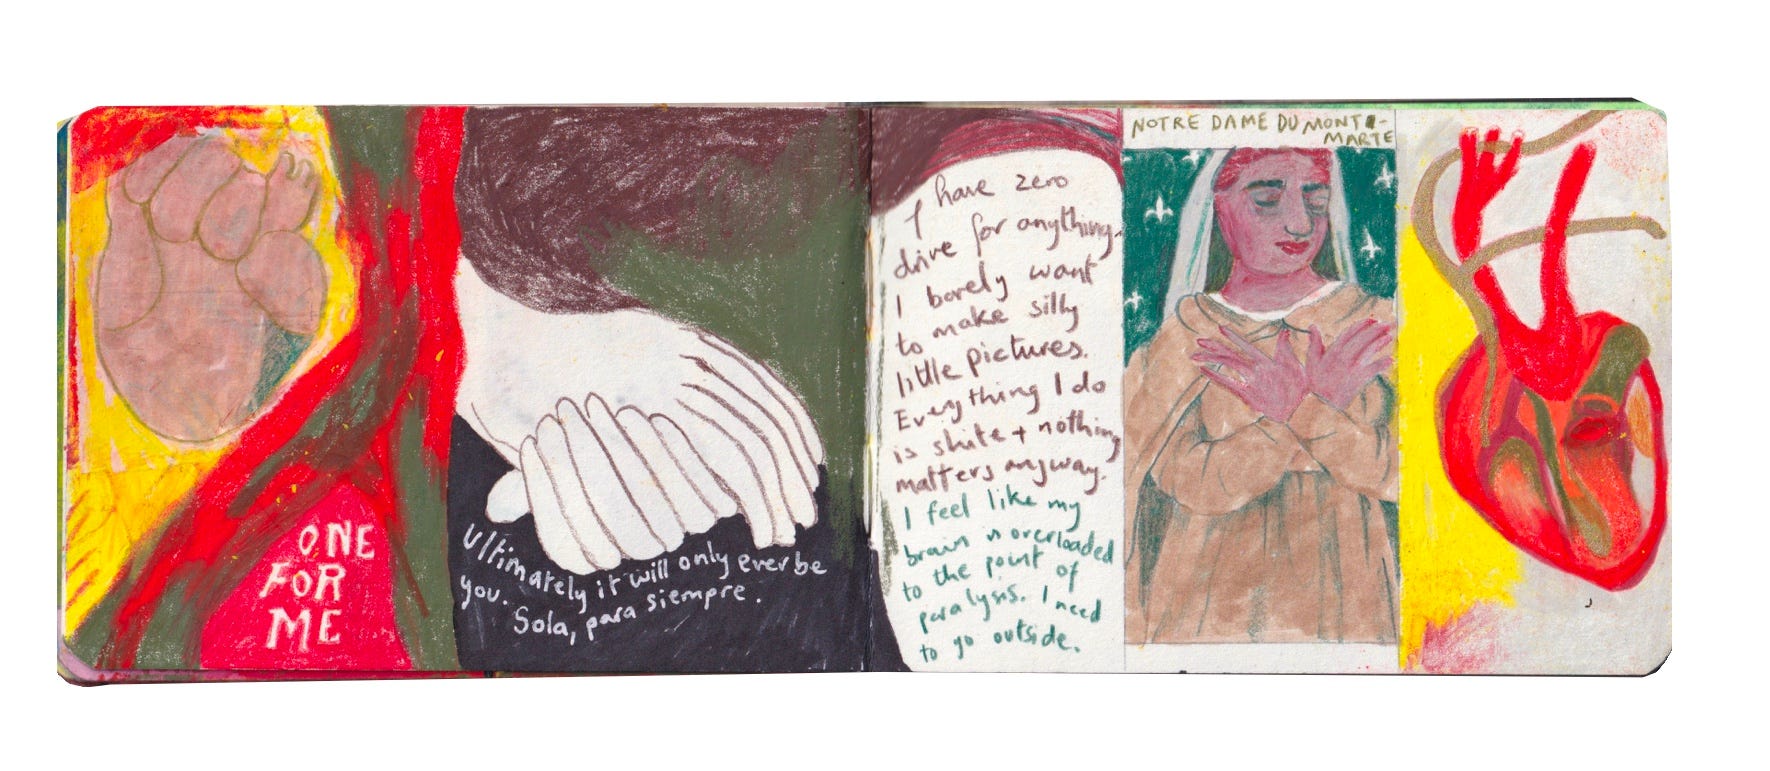 ONE
FOR
ME
Ultimately it will only ever be
you.
Sola, para siempre.
I have zero
drive for anything.
I barely want
to make silly
little pictures.
Everything I do
is shite + nothing
matters anyway.
I feel like my
brain is overloaded
to the point of
paralysis. I need
to go outside.
NOTRE DAME DU MONT-
MARTE